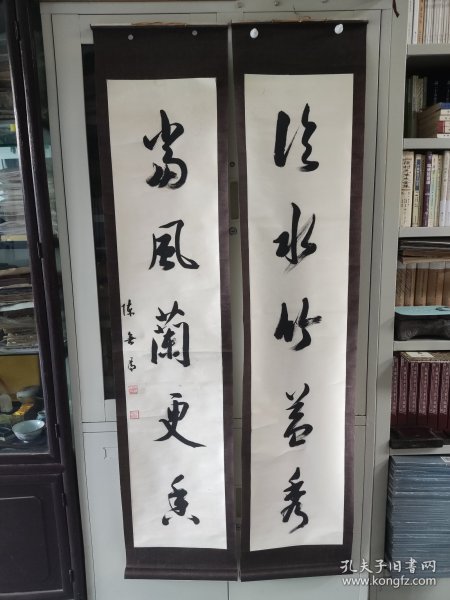 临水竹益秀
当風蘭更香
孔夫子旧书网
www.kongfz.com